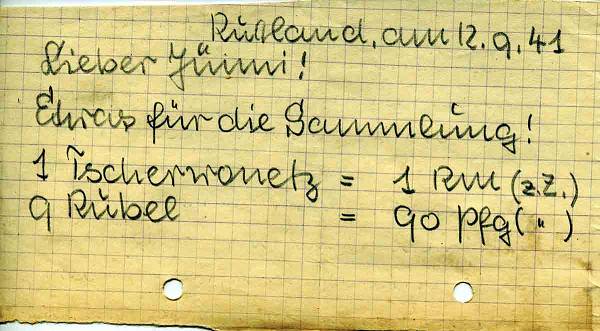 Rußland, am 12.9.41
Lieber Jünni!
Etwas für die Sammlung!
1 Tscherwonetz = 1 RM (z.Z.)
9 Rubel = 90 Pfg ( " )